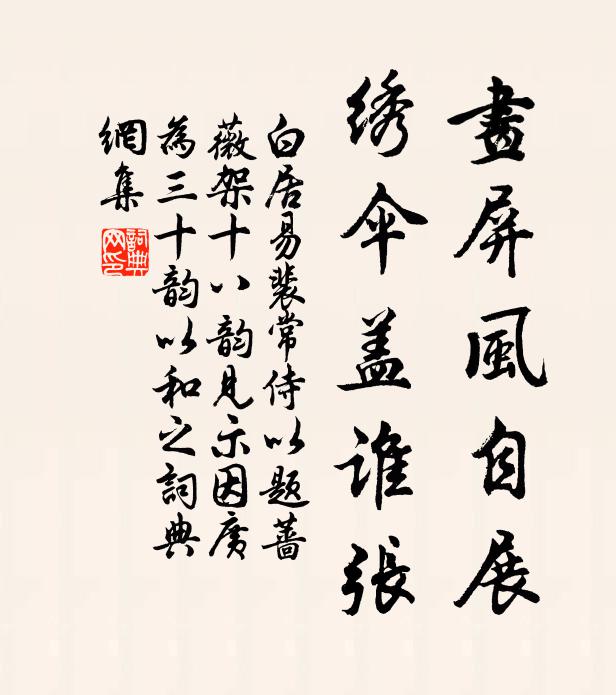 畫屏風自展
绣伞盖誰張
白居易裴常侍以题薔
薇架十八韵見示因廣
為三十韵以和之詞典
網集
詞典
网印